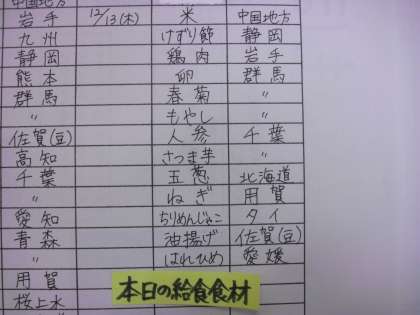 中国地方
岩手 12/13(木) 米 中国地方
九州 けずり節 静岡
静岡 鶏肉 岩手
熊本 卵 群馬
群馬 春菊 〃
〃 もやし 〃
佐賀(豆) 人参 千葉
高知 さつま芋 〃
千葉 玉葱 北海道
〃 ねぎ 用賀
愛知 ちりめんじゃこ タイ
青森 油揚げ 佐賀(豆)
〃 はれひめ 愛媛
用賀
桜上水
本日の給食食材